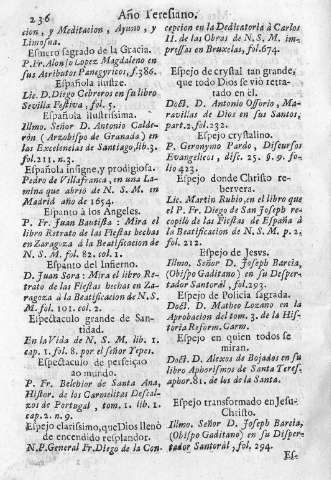 236
Año Teresiano.
cion, y Meditacion, Ayuno, y
Limosna.
Esmero sagrado de la Gracia.
P. Fr. Alonso Lopez Magdaleno en
sus Atributos Panegyricos, f. 386.
Española ilustre.
Lic. D. Diego Cebreros en su libro
Sevilla Festiva, fol. 5.
Española ilustrissima.
Illmo. Señor D. Antonio Calde-
rón (Arzobispo de Granada) en
las Excelencias de Santiago, lib. 3.
fol. 211. n. 2.
Española insigne, y prodigiosa.
Pedro de Villafranca, en una La-
mina que abriò de N. S. M. en
Madrid año de 1654.
Espanto à los Angeles.
P. Fr. Juan Bautista: Mira el
libro Retrato de las Fiestas hechas
en Zaragoza à la Beatificacion de
N. S. M. fol. 82. col. 1.
Espanto del Infierno.
D. Juan Sora: Mira el libro Re-
trato de las Fiestas hechas en Za-
ragoza à la Beatificacion de N. S.
M. fol. 101. col. 2.
Espectaculo grande de San-
tidad.
En la Vida de N. S. M. lib. 1.
cap. 1. fol. 8. por el señor Yepes.
Espectaculo de perfeiçaõ
ao mundo.
P. Fr. Belchior de Santa Ana,
Histor. de los Carmelitas Descal-
zos de Portugal, tom. 1. lib. 1.
cap. 2. n. 9.
Espejo clarissimo, que Dios llenò
de encendido resplandor.
N. P. General Fr. Diego de la Con-
cepcion en la Dedicatoria à Carlos
II. de las Obras de N. S. M. im-
pressas en Bruxelas, fol. 674.
Espejo de crystal tan grande,
que todo Dios se viò retra-
tado en él.
Doct. D. Antonio Ossorio, Ma-
ravillas de Dios en sus Santos,
part. 2. fol. 232.
Espejo crystalino.
P. Geronymo Pardo, Discursos
Evangelicos, disc. 25. §. 9. fo-
lio 423.
Espejo donde Christo re-
bervera.
Lic. Martin Rubio, en el libro que
el P. Fr. Diego de San Joseph re-
copilò de las Fiestas de España à
la Beatificacion de N. S. M. p. 2.
fol. 212.
Espejo de Jesvs.
Illmo. Señor D. Joseph Barcia,
(Obispo Gaditano) en su Desper-
tador Santorál, fol. 293.
Espejo de Policia sagrada.
Doct. D. Matheo Lozano en la
Aprobacion del tom. 3. de la His-
toria Reform. Carm.
Espejo en quien todos se
miran.
Doct. D. Alexos de Bojados en su
libro Aphorismos de Santa Teres.
aphor. 81. de los de la Santa.
Espejo transformado en Jesu-
Christo.
Illmo. Señor D. Joseph Barcia,
(Obispo Gaditano) en su Disper-
tador Santorál, fol. 294.
Es-